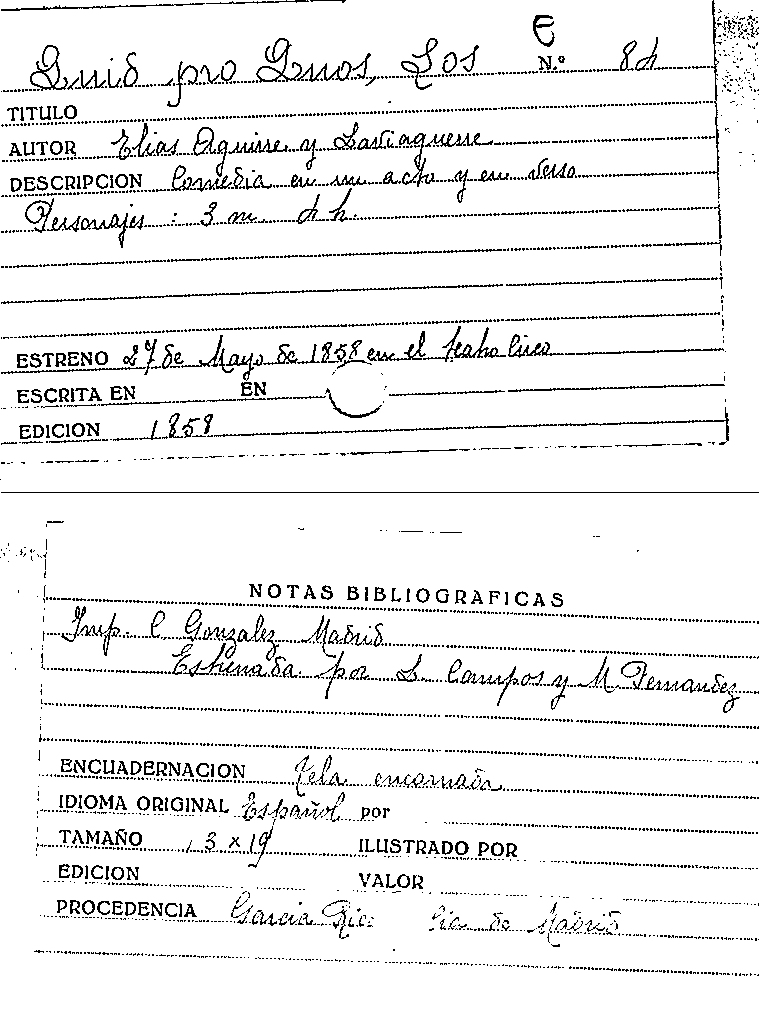 C
Quid pro Quos, Los N.º 84
TITULO
AUTOR Elias Aguirre y Lartiaguerre
DESCRIPCION Comedia en un acto y en verso
Personajes : 3 m. 4 h.
ESTRENO 27 de Mayo de 1858 en el teatro Circo
ESCRITA EN EN
EDICION 1858
NOTAS BIBLIOGRAFICAS
Imp. C Gonzalez Madrid
Estrenada por L. Campos y M Fernandez
ENCUADERNACION Tela encarnada
IDIOMA ORIGINAL Español por
TAMAÑO 13 x 19 ILUSTRADO POR
EDICION VALOR
PROCEDENCIA Garcia Rico de Madrid